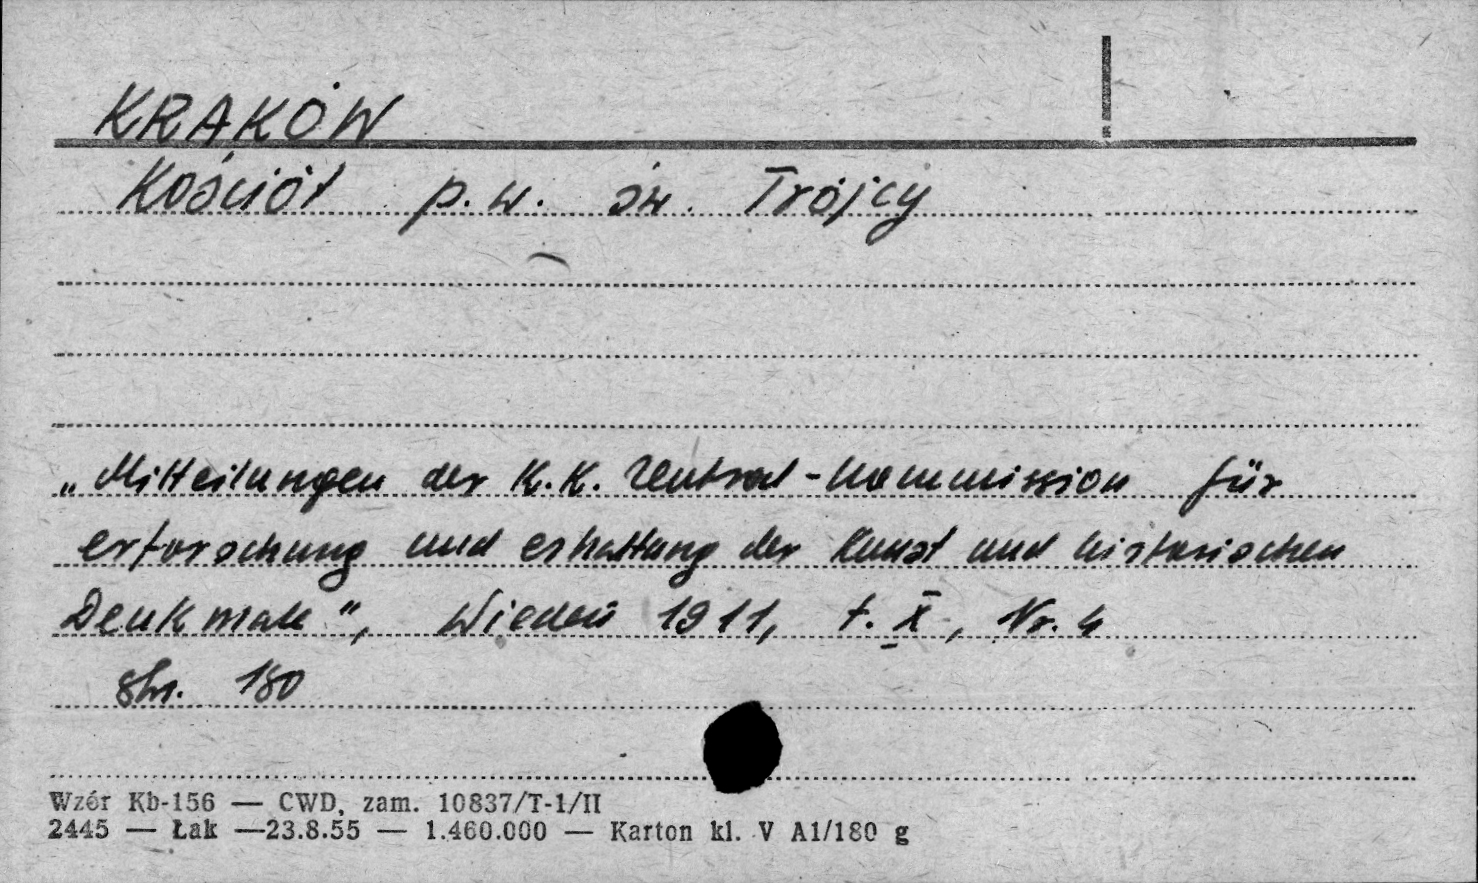 KRAKÓW
Kościół p.w. św. Trójcy
„Mitteilungen der K.K. Zentral-Kommission für
erforschung und erhaltung der Kunst und historischen
Denkmale", Wiedeń 1911, t. X, Nr. 4
str. 180
Wzór Kb-156 — CWD, zam. 10837/T-1/II
2445 — Łak —23.8.55 — 1.460.000 — Karton kl. V A1/180 g